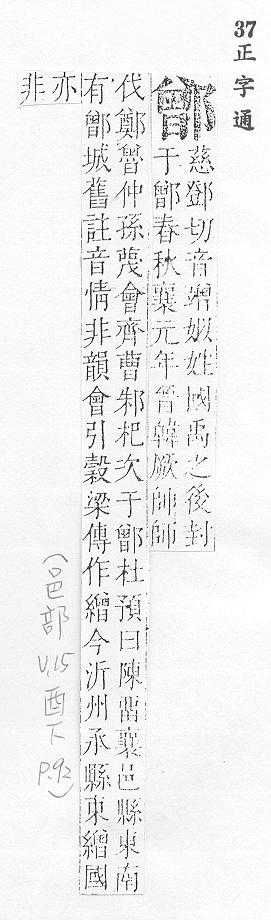 37
正字通
鄫
慈鄧切音贈姒姓國禹之後封
于鄫春秋襄元年晉韓厥帥師
伐鄭魯仲孫蔑會齊曹邾杞次于鄫杜預曰陳畱襄邑縣東南
有鄫城舊註音情非韻會引穀梁傳作繒今沂州承縣東繒國
亦
非
(邑部 V.15 酉下 P.92)